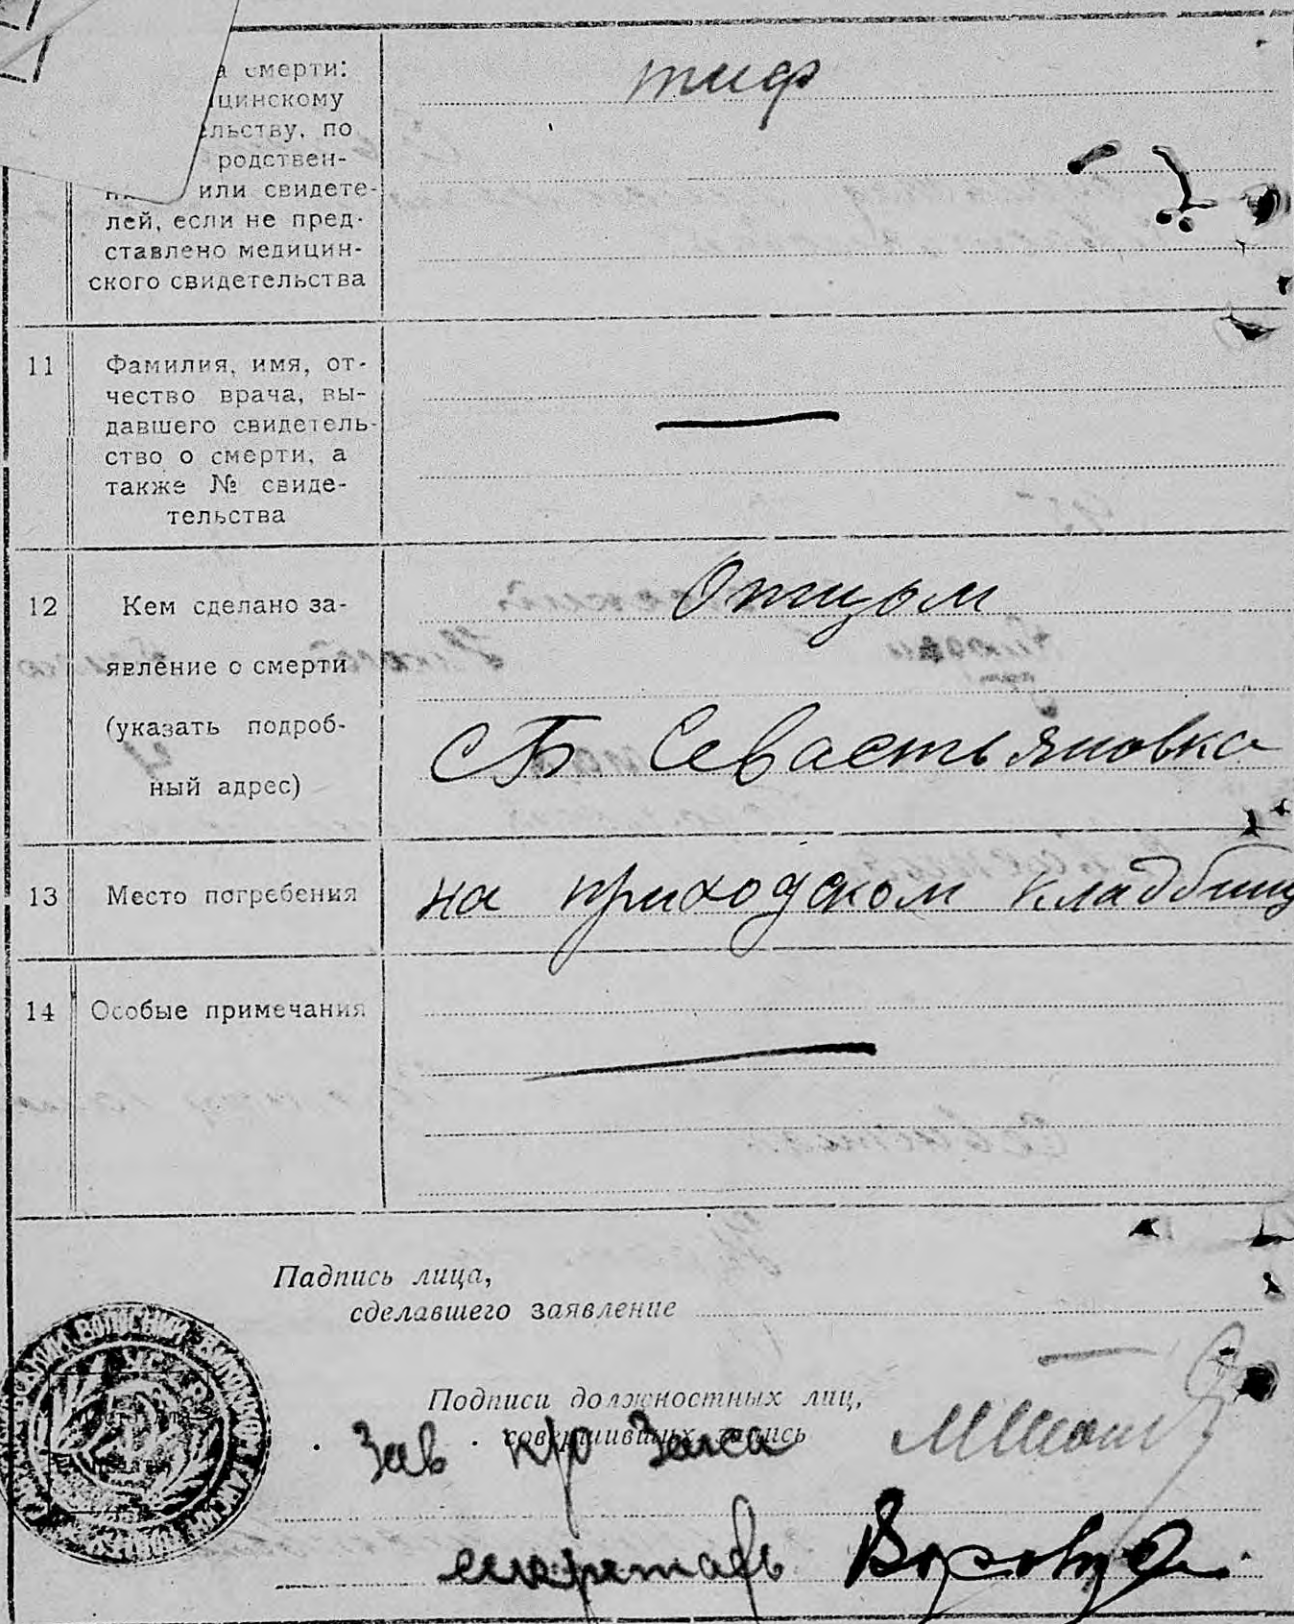 смерти:
тиф
по
родствен-
или свидете-
лей, если не пред-
ставлено медицин-
ского свидетельства
11
Фамилия, имя, от-
чество врача, вы-
давшего свидетель-
ство о смерти, а
также № свиде-
тельства
—
12
Кем сделано за-
явление о смерти
(указать подроб-
ный адрес)
Отцом
СБ Севастьяновка
13
Место погребения
на приходском кладбищ
14
Особые примечания
—
Падпись лица,
сделавшего заявление
Подписи должностных лиц,
совершивших запись
Зав п/о Загса
секретарь